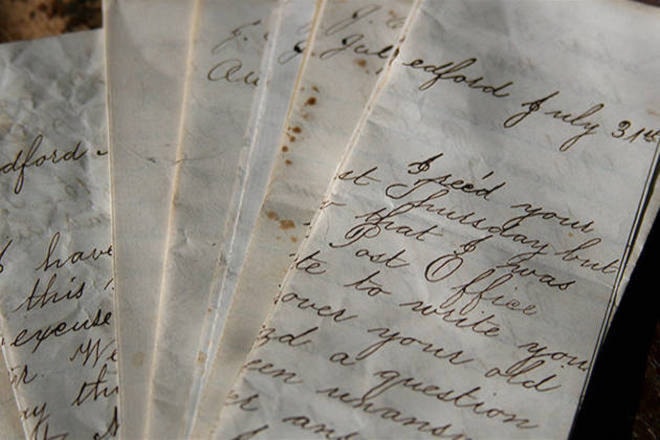 dford
I have
this
excuse
We
my
J.
Au
J.
Jul
edford July 31st
I rec'd your
st Thursday but
that I was
Post Office
te to write you
over your old
d a question
een unans
er an